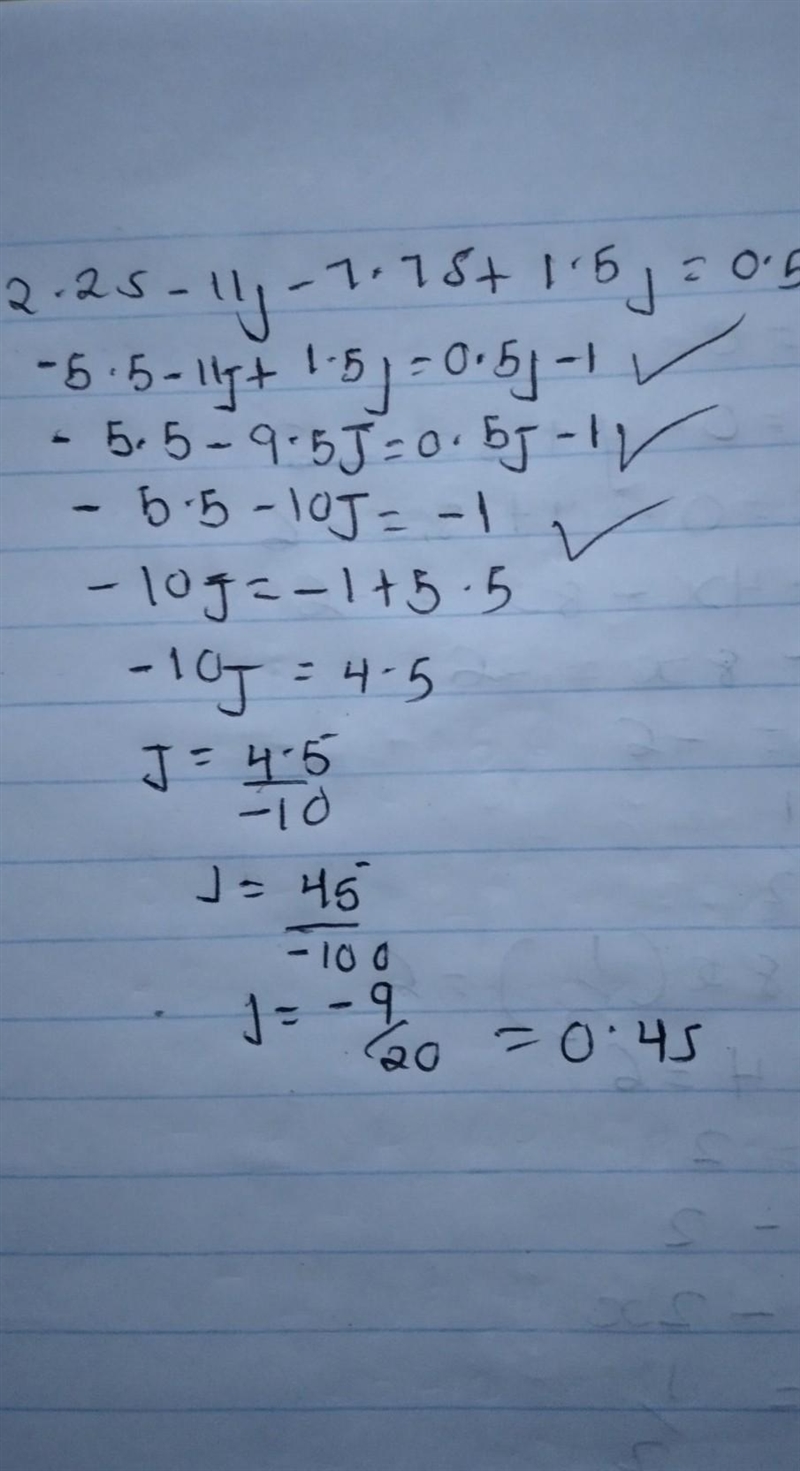 2.25 - 11j - 7.75 + 1.5j = 0.5
-5.5 - 11j + 1.5j = 0.5j - 1 ✓
- 5.5 - 9.5J = 0.5j - 1 ✓
- 5.5 - 10J = -1 ✓
- 10J = -1 + 5.5
-10J = 4.5
J = 4.5/-10
J = 45/-100
J = -9/20 = 0.45